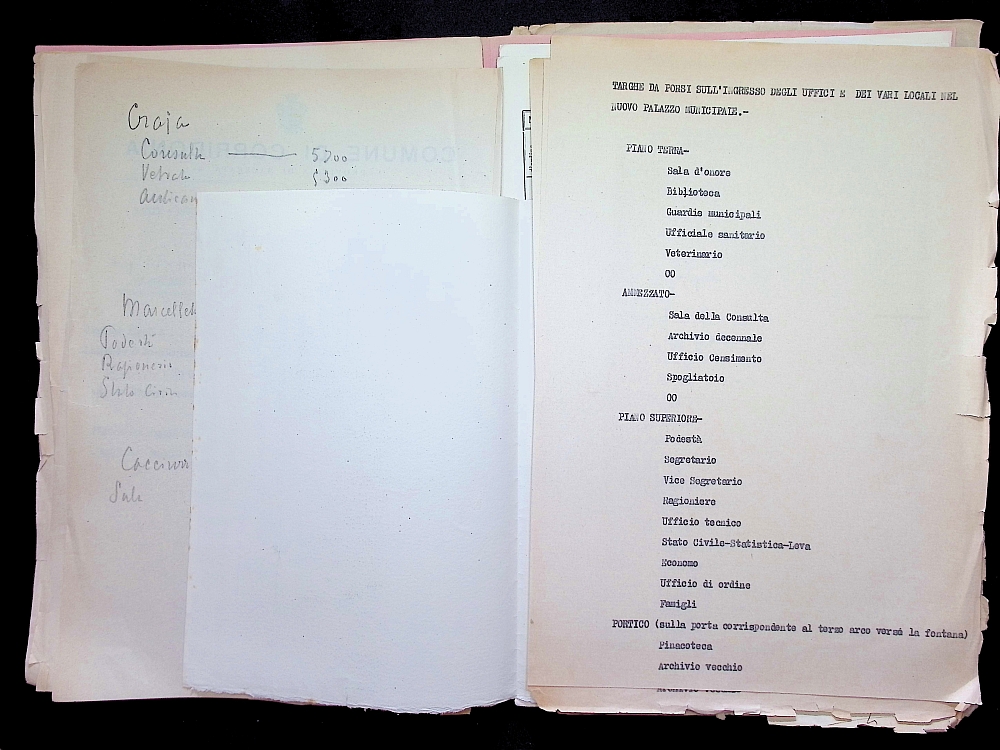 Graja
Consulta 5300
5300
Marcellet
Podestà
Ragioneria
Stato Civile
Sala
TARGHE DA PORSI SULL'INGRESSO DEGLI UFFICI E DEI VARI LOCALI NEL
NUOVO PALAZZO MUNICIPALE.-
PIANO TERRA-
Sala d'onore
Biblioteca
Guardie municipali
Ufficiale sanitario
Veterinario
OO
AMMEZZATO-
Sala della Consulta
Archivio decennale
Ufficio Censimento
Spogliatoio
OO
PIANO SUPERIORE-
Podestà
Segretario
Vice Segretario
Ragioniere
Ufficio tecnico
Stato Civile-Statistica-Leva
Economo
Ufficio di ordine
Famigli
PORTICO (sulla porta corrispondente al terzo arco verso la fontana)
Pinacoteca
Archivio vecchio